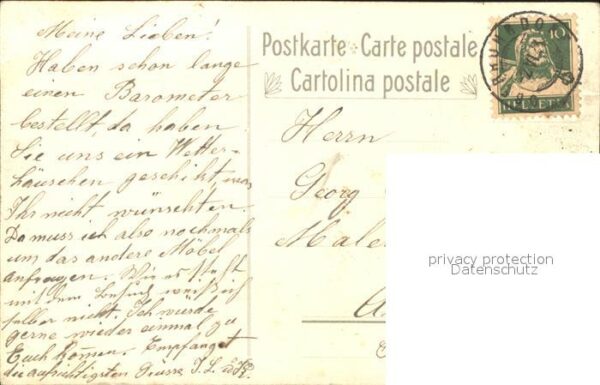 Meine Lieben!
Haben schon lange
einen Barometer
bestellt, da haben
Sie uns ein Wetter-
häuschen geschikt, was
Ihr nicht wünschten.
Da muss ich also nochmals
um das andere Möbel
anfragen. Wie es steht
mit dem Besuch weiß ich
selber nicht. Ich würde
gerne wieder einmal zu
Euch kommen. Empfanget
die aufrichtigsten Grüsse
Postkarte Carte postale
Cartolina postale
10
HELVETIA
Herrn
Georg
Male
privacy protection
Datenschutz